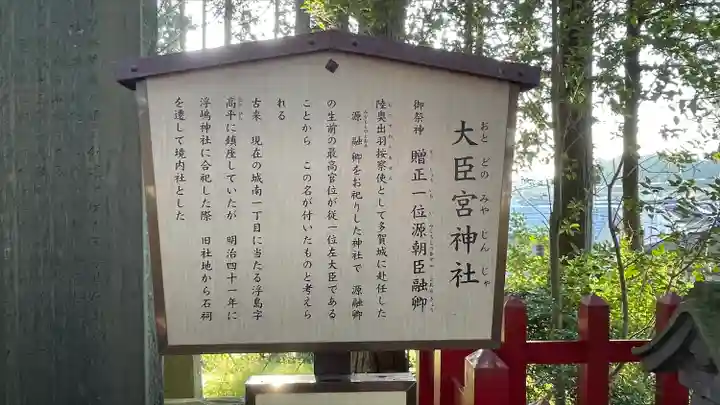 大臣宮神社
おとどのみやじんじゃ
御祭神 贈正一位源朝臣融卿
陸奥出羽按察使として多賀城に赴任した
源 融卿をお祀りした神社で 源融卿
の生前の最高官位が従一位左大臣である
ことから この名が付いたものと考えら
れる
古来 現在の城南一丁目に当たる浮島字
高平に鎮座していたが 明治四十一年に
浮嶋神社に合祀した際 旧社地から石祠
を遷して境内社とした